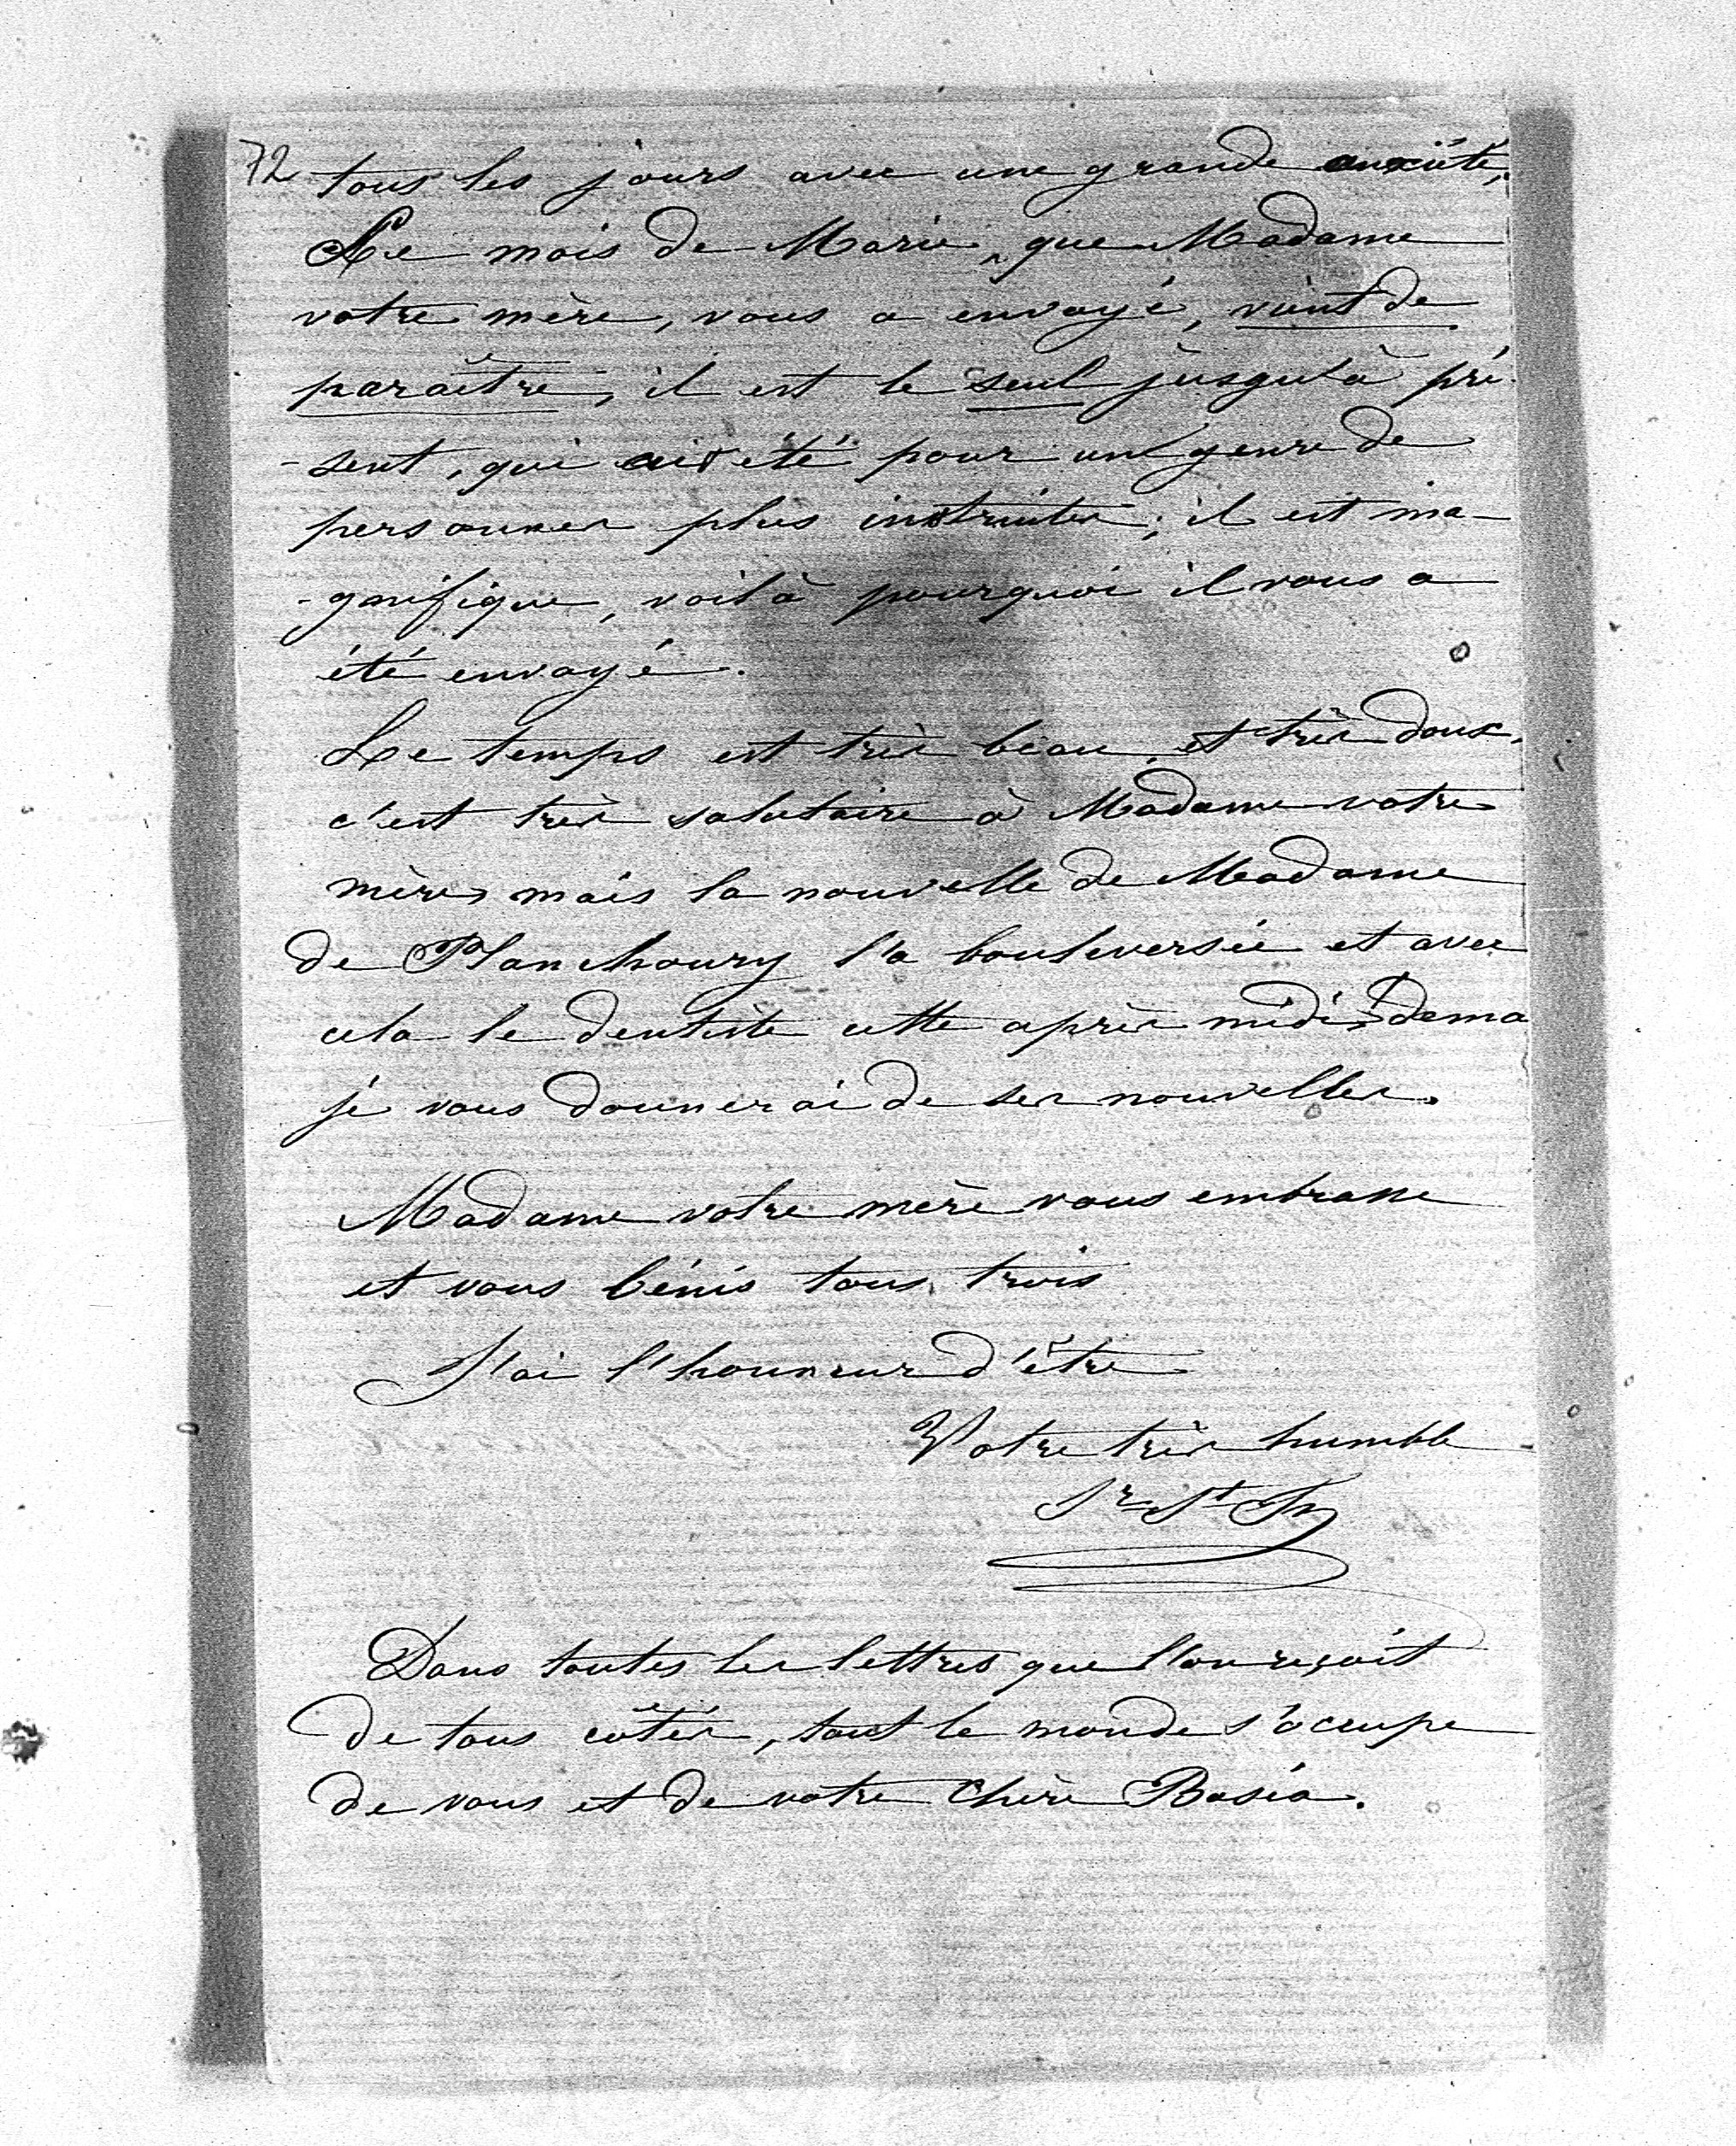 72 tous les jours avec une grande anxiété,
Le mois de Marie, que Madame
votre mère, vous a envoyé, vient de
paraître, il est le seul jusqu'à pré-
-sent, qui ait été pour un genre de
personnes plus instruites; il est ma-
-gnifique, voilà pourquoi il vous a
été envoyé.
Le temps est très beau, et très doux,
c'est très salutaire à Madame votre
mère, mais la nouvelle de Madame
de Planchoury l'a bouleversée et avec
cela le dentiste cette après midi, dema
je vous donnerai de ses nouvelles.
Madame votre mère vous embrasse
et vous bénis tous trois
J'ai l'honneur d'être
Votre très humble
Sr St
Dans toutes les lettres que l'on reçoit
de tous côtés, tout le monde s'occupe
de vous et de votre chère Basia.